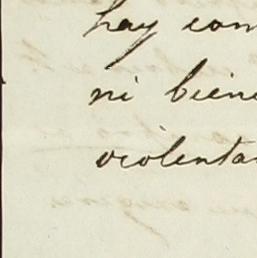 hay com
ni biene
violenta